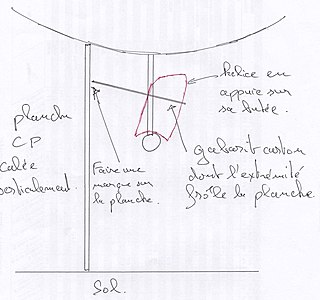 Hélice en
appuie sur
sa butée.
planche
CP
calée
verticalement.
Faire une
marque sur
la planche.
gabarit carton
dont l'extrémité
frôle la planche.
Sol.